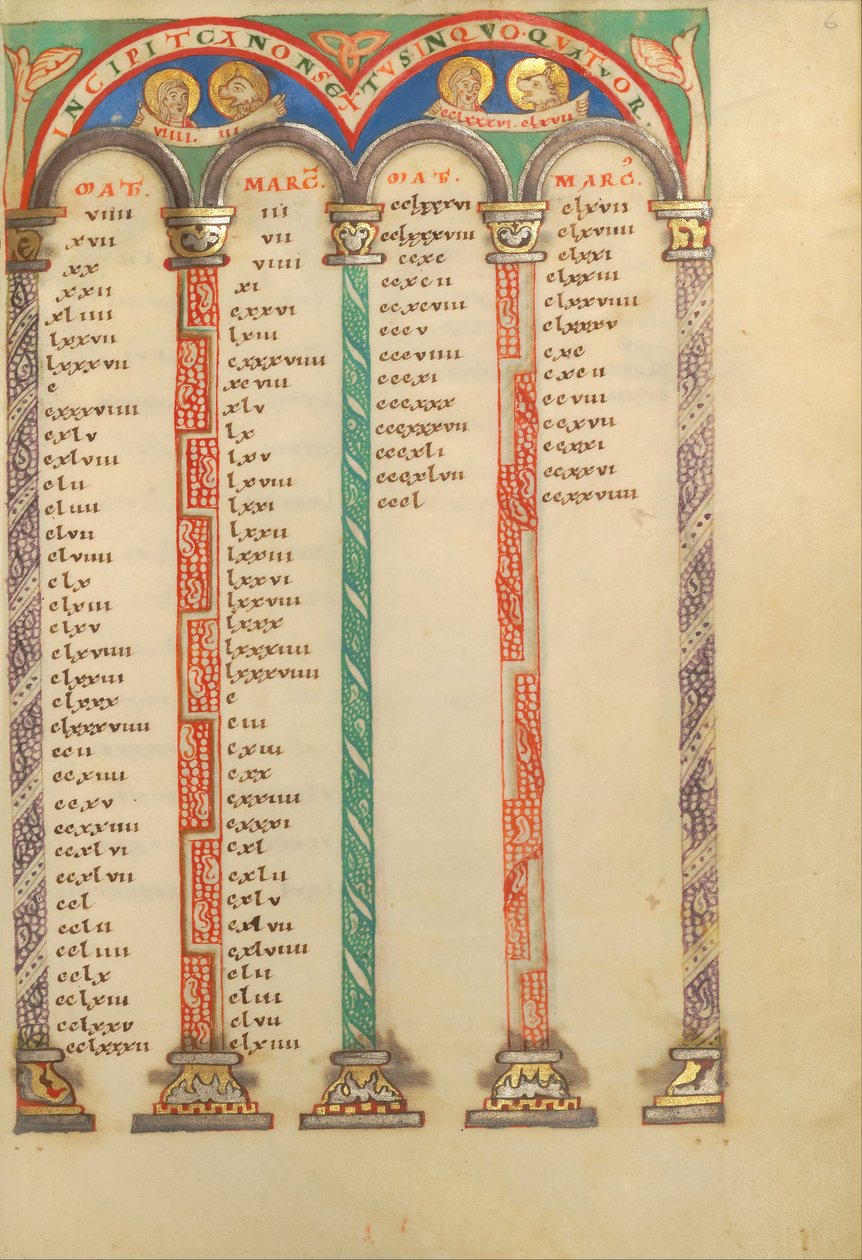 INCIPIT CANON SEXTVS IN QVO·QVATVOR.
VIIII. III.
CCLXXXVI. CLXVII
MAT.
viiii
xvii
xx
xxii
xliiii
lxxvii
lxxxvii
c
cxxxviiii
cxlv
cxlviii
clii
cliiii
clvii
clviiii
clx
clxiii
clxv
clxviiii
clxxiii
clxxx
clxxxviiii
ccii
ccxiiii
ccxv
ccxxiiii
ccxlvi
ccxlvii
ccl
cclii
ccliiii
cclx
cclxiii
cclxxv
cclxxxii
MARC.
iii
vii
viiii
xi
cxxvi
lxiii
cxxxviiii
xcviii
xlv
lx
lxv
lxviii
lxxi
lxxii
lxxiii
lxxvi
lxxviii
lxxx
lxxxiiii
lxxxviiii
c
ciii
cxiii
cxx
cxxiiii
cxxxi
cxl
cxlii
cxlv
cxlvii
cxlviiii
clii
cliii
clvii
clxiiii
MAT.
cclxxxvi
cclxxxviii
ccxc
ccxcii
ccxcviii
cccv
cccviiii
cccxi
cccxxx
cccxxxvii
cccxli
cccxlvii
cccl
MARC.
clxvii
clxviiii
clxxi
clxxiii
clxxviiii
clxxxv
cxc
cxcii
ccviii
ccxvii
ccxxi
ccxxvi
ccxxviiii
6